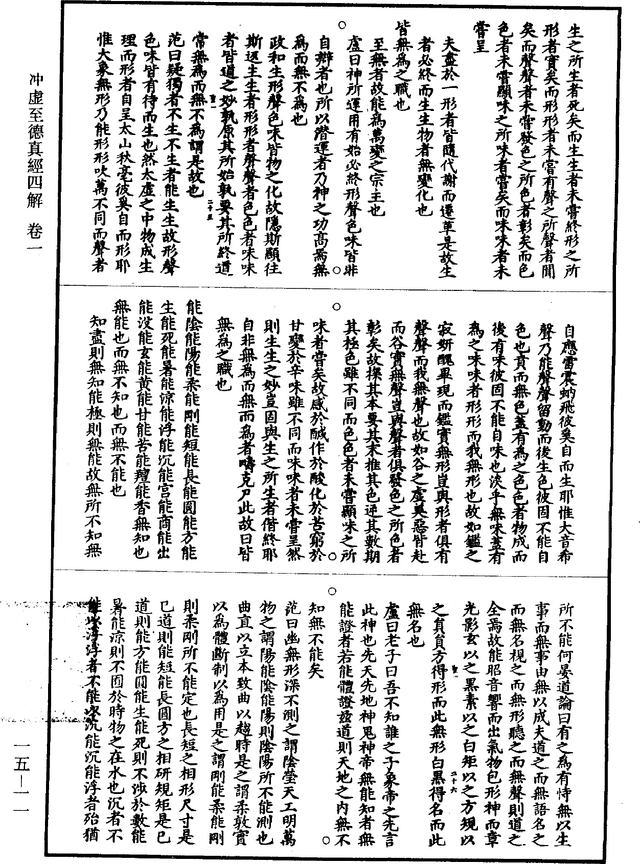 生之所生者死矣而生生者未嘗終形之所
形者實矣而形形者未嘗有聲之所聲者聞
矣而聲聲者未嘗發色之所色者彰矣而色
色者未嘗顯味之所味者嘗矣而味味者未
嘗呈
夫盡於一形者皆隨代謝而遷革是故生
者必終而生生物者無變化也
皆無為之職也
至無者故能為萬變之宗主也
盧曰神所運用有始必終形聲色味皆非
自辯者也所以潛運者乃神之功高焉無
為而無不為也
政和生形聲色味皆物之化故隱斯顯往
斯返生生者形形者聲聲者色色者味味
者皆道之妙孰原其所始孰要其所終道
常無為而無不為謂是故也
范曰疑獨者不生不生者能生生故形聲
色味皆有待而生也然太虛之中物成生
理而形者自呈太山秋毫彼奚自而形耶
惟大象無形乃能形形吹萬不同而聲者
自應雷震蚋飛彼奚自而生耶惟大音希
聲乃能聲聲留動而後生色彼固不能自
色也賁而無色蓋有為之色色者物成而
後有味彼固不能自味也淡乎無味蓋有
為之味味者形形而我無形也故如鑑之
寂妍醜畢現而鑑實無形豈與形者俱有
聲聲而我無聲也故如谷之虛美惡皆赴
而谷實無聲豈與聲者俱發色之所色者
彰矣故探其本要其末推其色逆其數期
其極色雖不同而色色者未嘗顯味之所
味者嘗矣故感於鹹作於酸化於苦窮於
甘變於辛味雖不同而味味者未嘗呈然
則生生之妙豈固與生之所生者偕終耶
自非無為而無而為者疇克尸此故曰皆
無為之職也
能陰能陽能柔能剛能短能長能圓能方能
生能死能暑能涼能浮能沉能宮能商能出
能沒能玄能黃能甘能苦能羶能香無知也
無能也而無不知也而無不能也
知盡則無知能極則無能故無所不知無
所不能何晏道論曰有之為有恃無以生
事而無事由無以成夫道之而無語名之
而無名視之而無形聽之而無聲則道之
全焉故能昭音響而出氣物包形神而章
光影玄以之黑素以之白矩以之方規以
之員員方得形而此無形白黑得名而此
無名也
盧曰老子曰吾不知誰之子象帝之先言
此神也先天先地神鬼神帝無能知者無
能證者若能體證茲道則天地之內無不
知無不能矣
范曰幽無形深不測之謂陰瑩天工明萬
物之謂陽能陰能陽則陰陽所不能測也
曲直以立本致曲以趨時是之謂柔敦實
以為體斷制以為用是之謂剛能柔能剛
則柔剛所不能定也長短之相形尺寸是
已道則能短能長圓方之相研規矩是已
道則能方能圓能生能死則不涉於數能
暑能涼則不囿於時物之在水也沉者不
能浮浮者不能沉能沉能浮者殆猶
冲虛至德真經四解 卷一
一五—一一